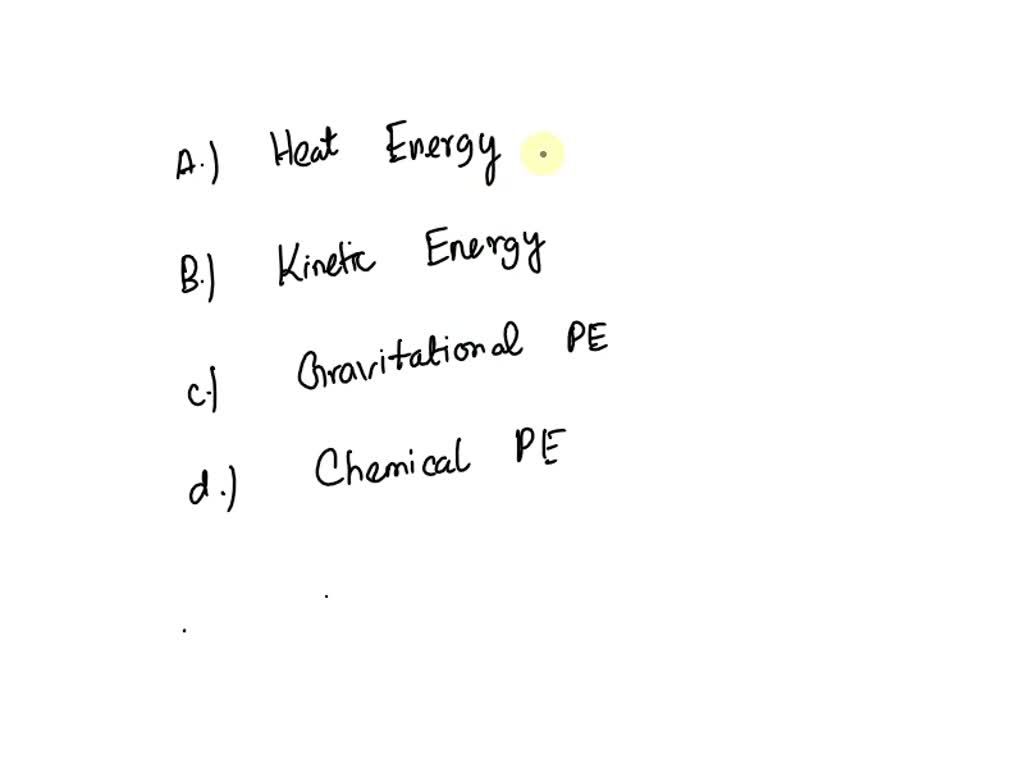 A.) Heat Energy
B.) Kinetic Energy
C.) Gravitational PE
d.) Chemical PE